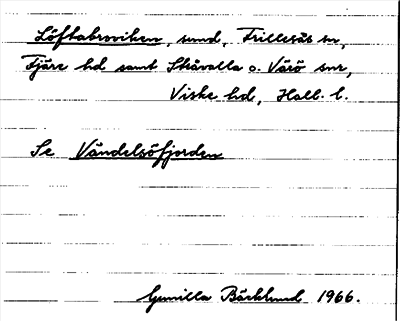 Löftabroviken, sund, Frillesås sn,
Fjäre hd samt Stråvalla o. Värö snr,
Viske hd, Hall. l.
Se Vändelsöfjorden
Gunilla Bäcklund 1966.